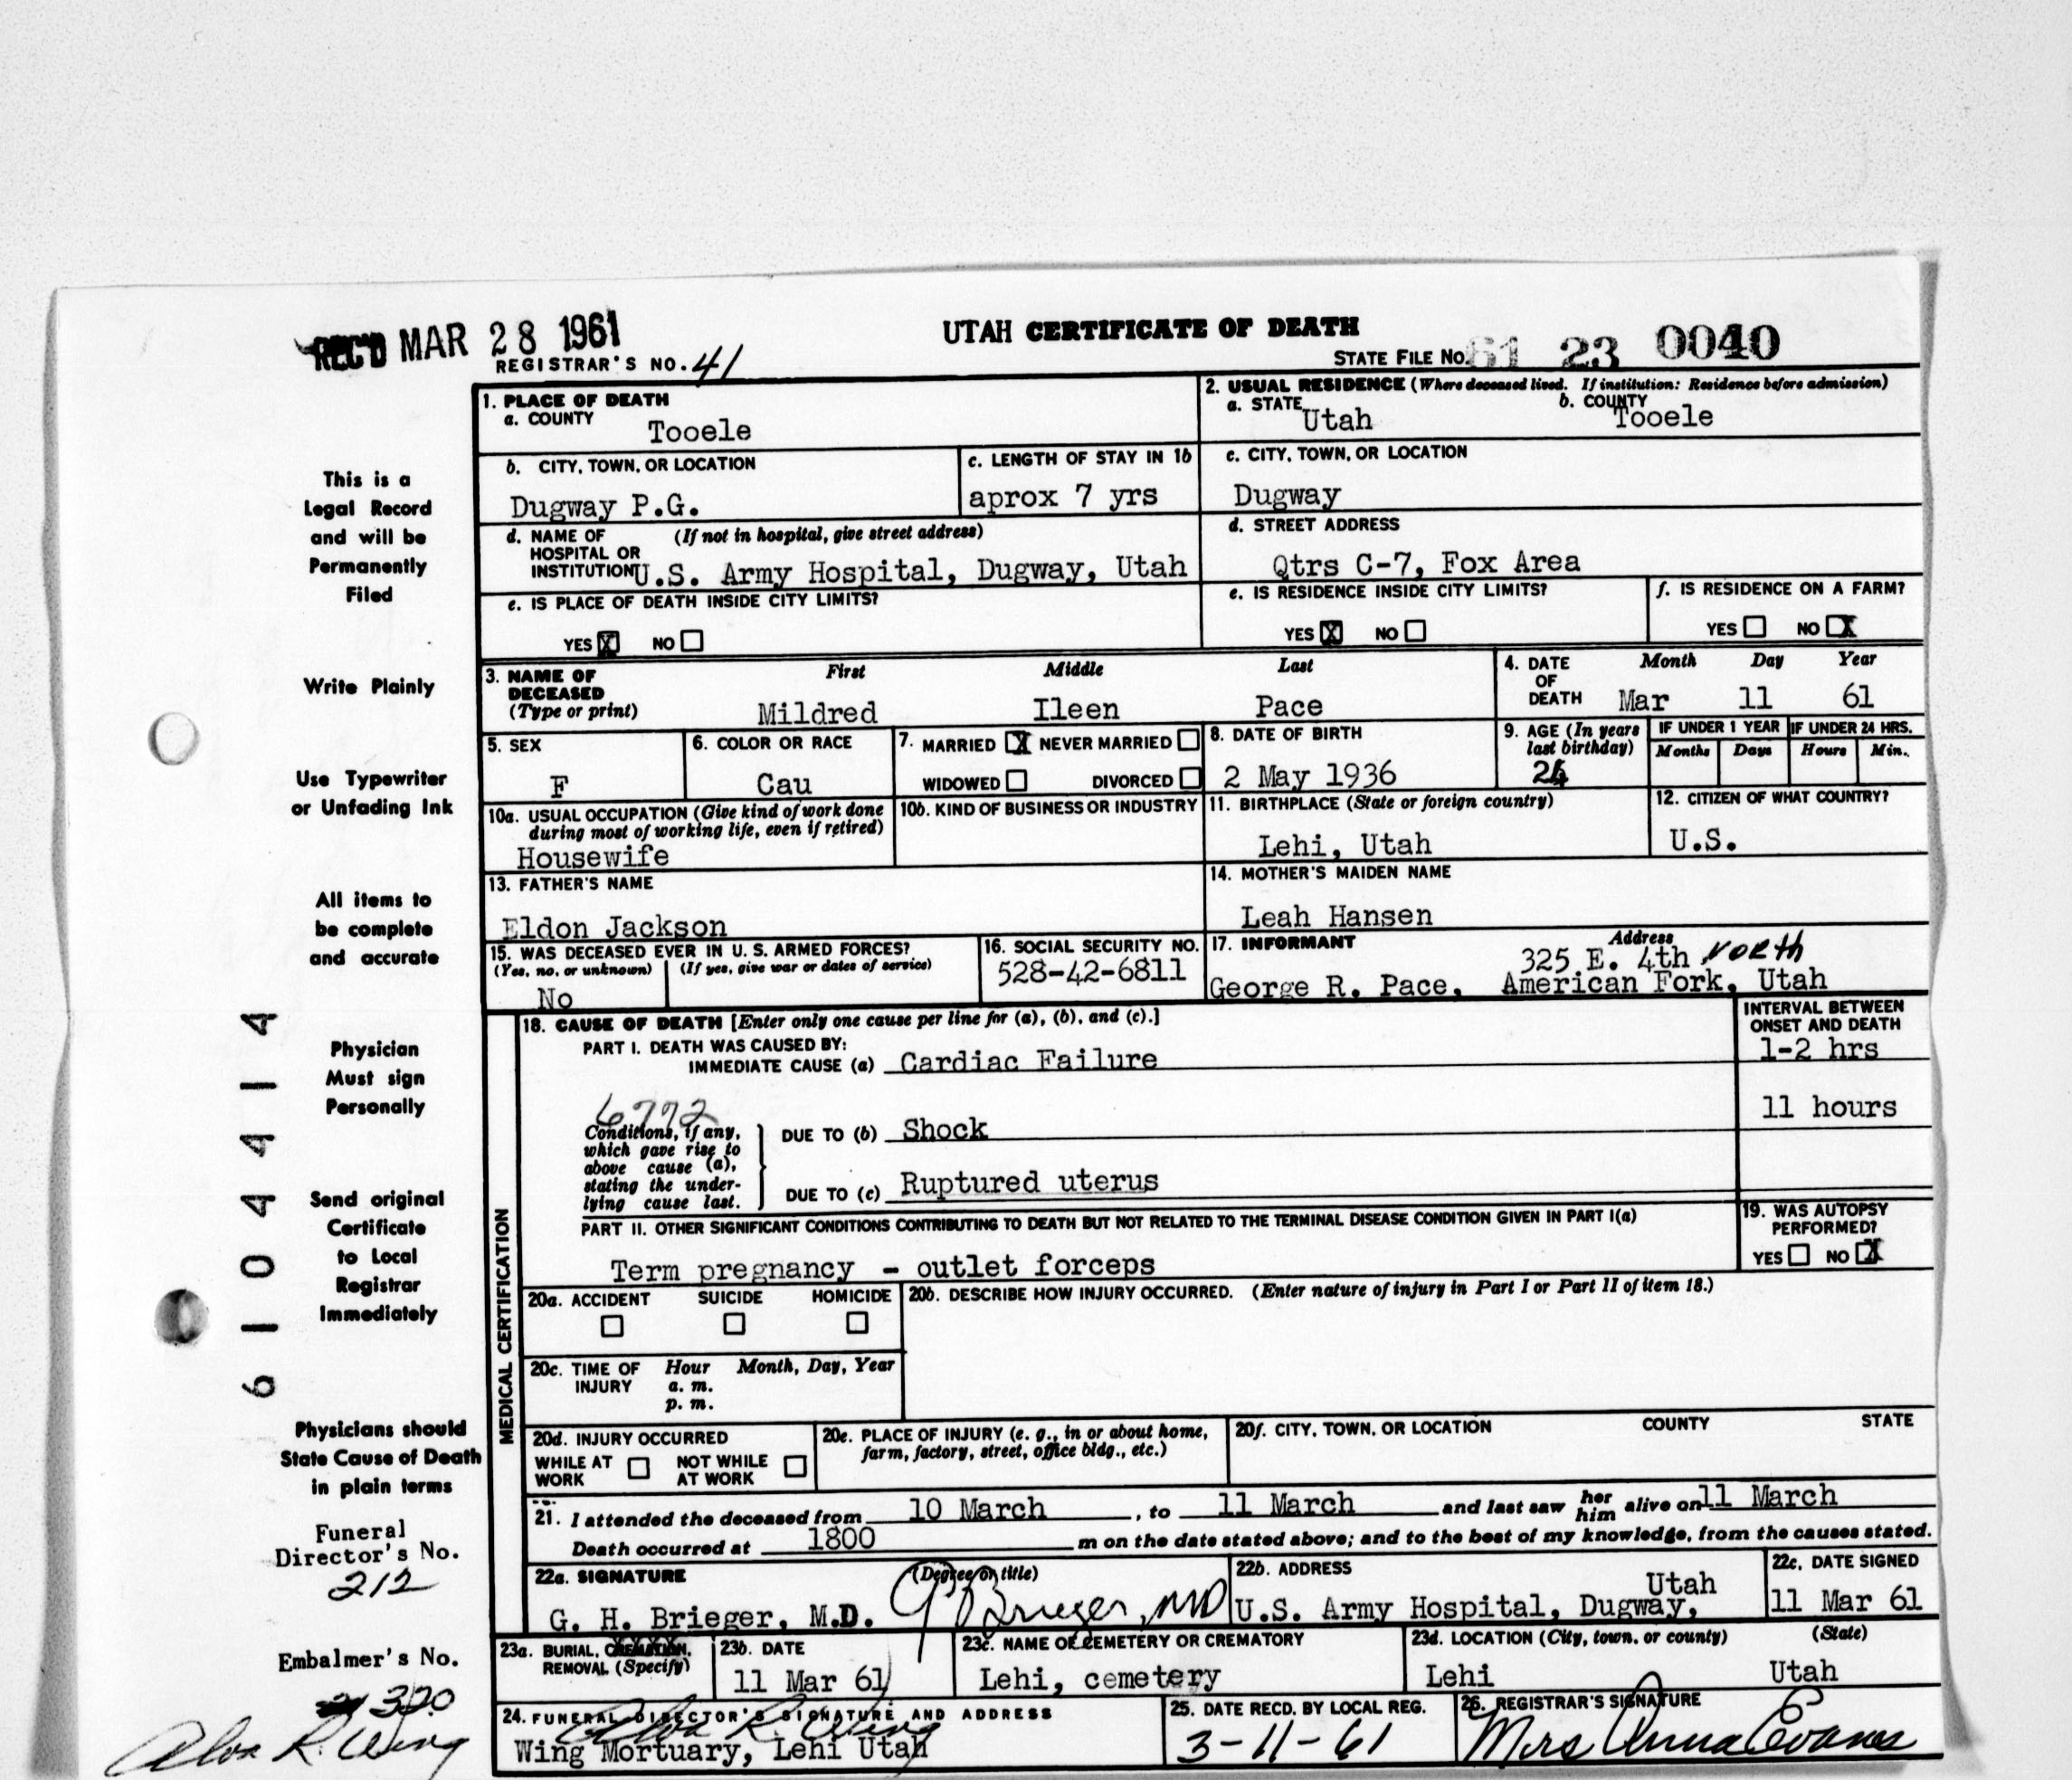 REC'D MAR 28 1961
UTAH CERTIFICATE OF DEATH
REGISTRAR'S NO. 41
STATE FILE No. 61 23 0040
1. PLACE OF DEATH
a. COUNTY
Tooele
2. USUAL RESIDENCE (Where deceased lived. If institution: Residence before admission)
a. STATE Utah
b. COUNTY Tooele
b. CITY, TOWN, OR LOCATION
Dugway P.G.
c. LENGTH OF STAY IN 1b
aprox 7 yrs
c. CITY, TOWN, OR LOCATION
Dugway
d. NAME OF HOSPITAL OR INSTITUTION (If not in hospital, give street address)
U.S. Army Hospital, Dugway, Utah
d. STREET ADDRESS
Qtrs C-7, Fox Area
e. IS PLACE OF DEATH INSIDE CITY LIMITS?
YES X NO
e. IS RESIDENCE INSIDE CITY LIMITS?
YES X NO
f. IS RESIDENCE ON A FARM?
YES NO X
3. NAME OF DECEASED (Type or print)
First Middle Last
Mildred Ileen Pace
4. DATE OF DEATH
Month Day Year
Mar 11 61
5. SEX
F
6. COLOR OR RACE
Cau
7. MARRIED X NEVER MARRIED
WIDOWED DIVORCED
8. DATE OF BIRTH
2 May 1936
9. AGE (In years last birthday)
24
IF UNDER 1 YEAR
Months Days
IF UNDER 24 HRS.
Hours Min.
10a. USUAL OCCUPATION (Give kind of work done during most of working life, even if retired)
Housewife
10b. KIND OF BUSINESS OR INDUSTRY
11. BIRTHPLACE (State or foreign country)
Lehi, Utah
12. CITIZEN OF WHAT COUNTRY?
U.S.
13. FATHER'S NAME
Eldon Jackson
14. MOTHER'S MAIDEN NAME
Leah Hansen
15. WAS DECEASED EVER IN U. S. ARMED FORCES?
(Yes, no, or unknown) (If yes, give war or dates of service)
No
16. SOCIAL SECURITY NO.
528-42-6811
17. INFORMANT
Address
325 E. 4th North
George R. Pace, American Fork, Utah
MEDICAL CERTIFICATION
18. CAUSE OF DEATH [Enter only one cause per line for (a), (b), and (c).]
INTERVAL BETWEEN ONSET AND DEATH
PART I. DEATH WAS CAUSED BY:
IMMEDIATE CAUSE (a) Cardiac Failure
1-2 hrs
6772
Conditions, if any, which gave rise to above cause (a), stating the underlying cause last.
DUE TO (b) Shock
11 hours
DUE TO (c) Ruptured uterus
PART II. OTHER SIGNIFICANT CONDITIONS CONTRIBUTING TO DEATH BUT NOT RELATED TO THE TERMINAL DISEASE CONDITION GIVEN IN PART I(a)
Term pregnancy - outlet forceps
19. WAS AUTOPSY PERFORMED?
YES NO X
20a. ACCIDENT SUICIDE HOMICIDE
20b. DESCRIBE HOW INJURY OCCURRED. (Enter nature of injury in Part I or Part II of item 18.)
20c. TIME OF INJURY
Hour Month, Day, Year
a. m.
p. m.
20d. INJURY OCCURRED
WHILE AT WORK NOT WHILE AT WORK
20e. PLACE OF INJURY (e. g., in or about home, farm, factory, street, office bldg., etc.)
20f. CITY, TOWN, OR LOCATION COUNTY STATE
21. I attended the deceased from 10 March, to 11 March and last saw her him alive on 11 March
Death occurred at 1800 m on the date stated above; and to the best of my knowledge, from the causes stated.
22a. SIGNATURE (Degree or title)
G. H. Brieger, M.D. G Brieger, MD
22b. ADDRESS
U.S. Army Hospital, Dugway, Utah
22c. DATE SIGNED
11 Mar 61
23a. BURIAL, CREMATION, REMOVAL (Specify)
23b. DATE
11 Mar 61
23c. NAME OF CEMETERY OR CREMATORY
Lehi, cemetery
23d. LOCATION (City, town, or county) (State)
Lehi Utah
24. FUNERAL DIRECTOR'S SIGNATURE AND ADDRESS
Alva R. Wing
Wing Mortuary, Lehi Utah
25. DATE RECD. BY LOCAL REG.
3-11-61
26. REGISTRAR'S SIGNATURE
Mrs Anna Evans
This is a
Legal Record
and will be
Permanently
Filed
Write Plainly
Use Typewriter
or Unfading Ink
All items to
be complete
and accurate
Physician
Must sign
Personally
Send original
Certificate
to Local
Registrar
Immediately
Physicians should
State Cause of Death
in plain terms
Funeral
Director's No.
212
Embalmer's No.
320
Alva R. Wing
6104414